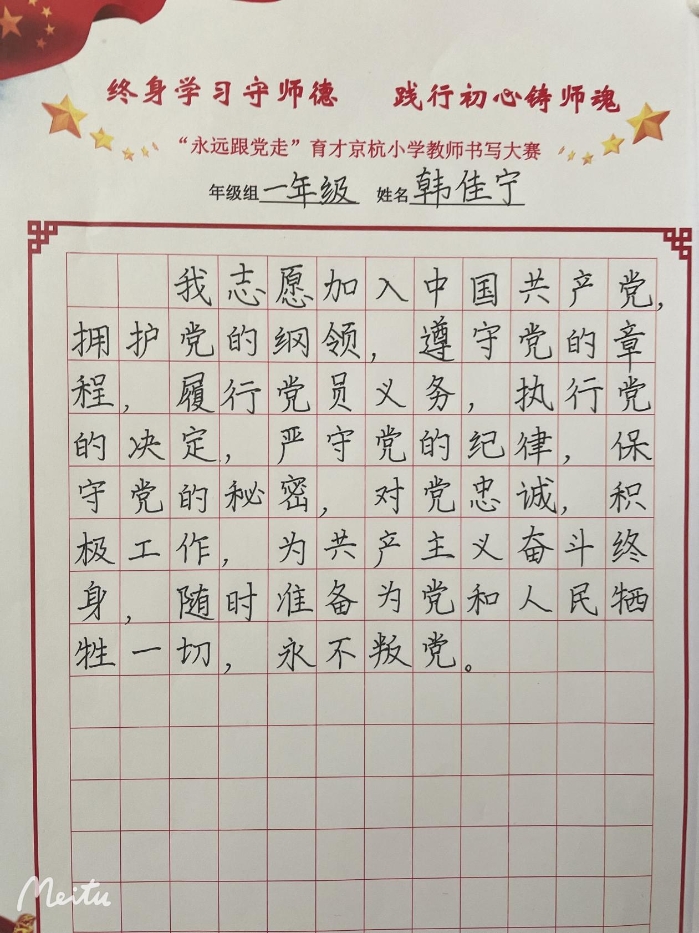 终身学习守师德 践行初心铸师魂
“永远跟党走”育才京杭小学教师书写大赛
年级组一年级 姓名韩佳宁
我志愿加入中国共产党,
拥护党的纲领,遵守党的章
程,履行党员义务,执行党
的决定,严守党的纪律,保
守党的秘密,对党忠诚,积
极工作,为共产主义奋斗终
身,随时准备为党和人民牺
牲一切,永不叛党。
Meitu